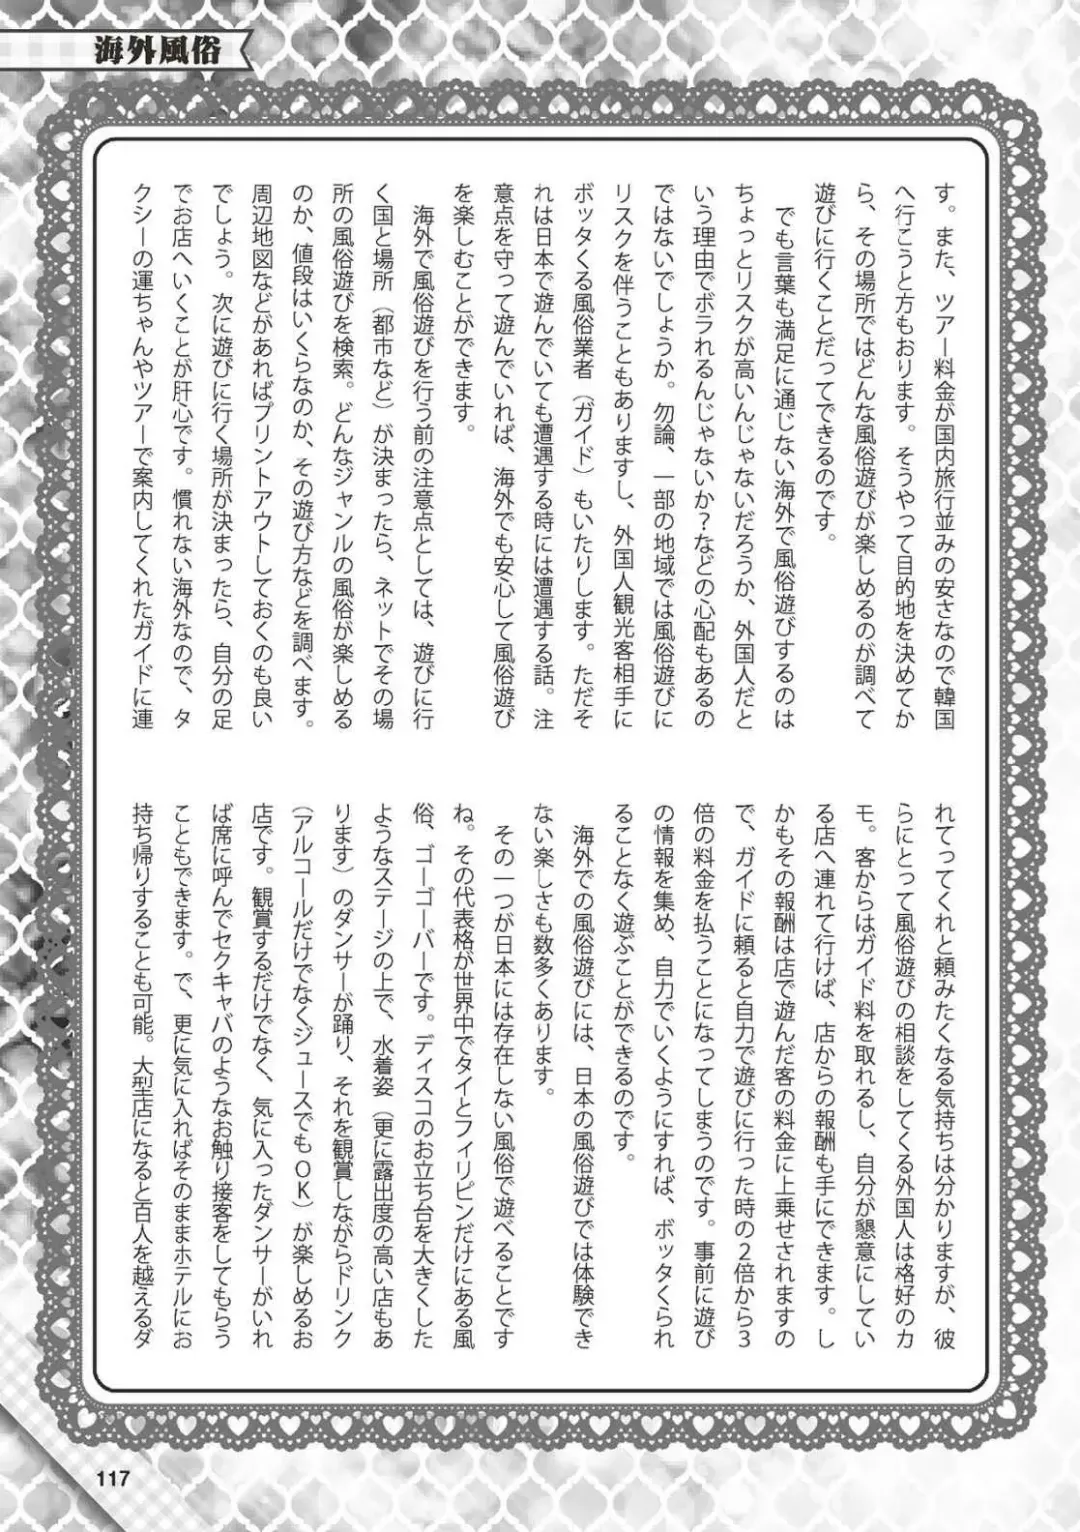 海外風俗
す。また、ツアー料金が国内旅行並みの安さなので韓国
へ行こうと方もおります。そうやって目的地を決めてか
ら、その場所ではどんな風俗遊びが楽しめるのが調べて
遊びに行くことだってできるのです。
でも言葉も満足に通じない海外で風俗遊びするのは
ちょっとリスクが高いんじゃないだろうか、外国人だと
いう理由でボラれるんじゃないか？などの心配もあるの
ではないでしょうか。勿論、一部の地域では風俗遊びに
リスクを伴うこともありますし、外国人観光客相手に
ボッタくる風俗業者（ガイド）もいたりします。ただそ
れは日本で遊んでいても遭遇する時には遭遇する話。注
意点を守って遊んでいれば、海外でも安心して風俗遊び
を楽しむことができます。
海外で風俗遊びを行う前の注意点としては、遊びに行
く国と場所（都市など）が決まったら、ネットでその場
所の風俗遊びを検索。どんなジャンルの風俗が楽しめる
のか、値段はいくらなのか、その遊び方などを調べます。
周辺地図などがあればプリントアウトしておくのも良い
でしょう。次に遊びに行く場所が決まったら、自分の足
でお店へいくことが肝心です。慣れない海外なので、タ
クシーの運ちゃんやツアーで案内してくれたガイドに連
れてってくれと頼みたくなる気持ちは分かりますが、彼
らにとって風俗遊びの相談をしてくる外国人は格好のカ
モ。客からはガイド料を取れるし、自分が懇意にしてい
る店へ連れて行けば、店からの報酬も手にできます。し
かもその報酬は店で遊んだ客の料金に上乗せされますの
で、ガイドに頼ると自力で遊びに行った時の２倍から３
倍の料金を払うことになってしまうのです。事前に遊び
の情報を集め、自力でいくようにすれば、ボッタくられ
ることなく遊ぶことができるのです。
海外での風俗遊びには、日本の風俗遊びでは体験でき
ない楽しさも数多くあります。
その一つが日本には存在しない風俗で遊べることです
ね。その代表格が世界中でタイとフィリピンだけにある風
俗、ゴーゴーバーです。ディスコのお立ち台を大きくした
ようなステージの上で、水着姿（更に露出度の高い店もあ
ります）のダンサーが踊り、それを観賞しながらドリンク
（アルコールだけでなくジュースでもＯＫ）が楽しめるお
店です。観賞するだけでなく、気に入ったダンサーがいれ
ば席に呼んでセクキャバのようなお触り接客をしてもらう
こともできます。で、更に気に入ればそのままホテルにお
持ち帰りすることも可能。大型店になると百人を越えるダ
117